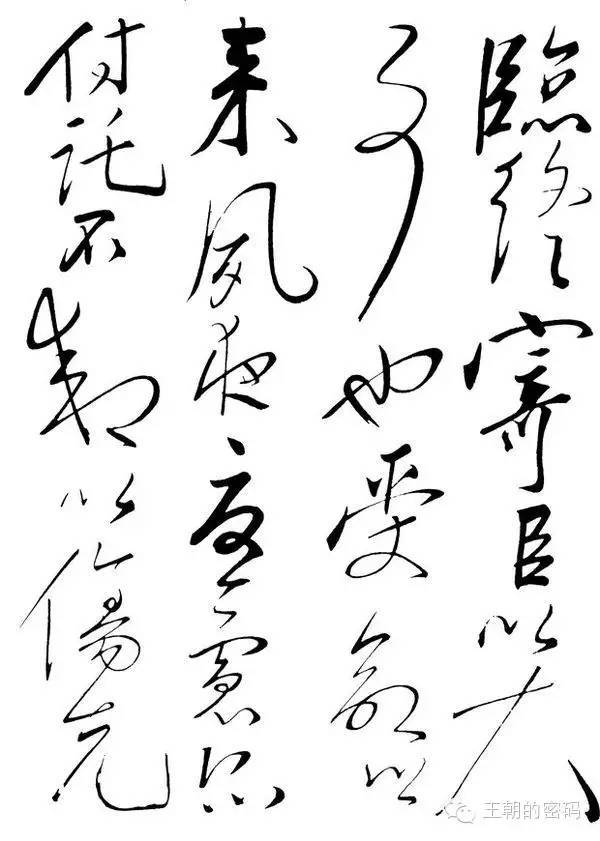 臨終寄臣以大
事也受命以
來夙夜憂慮恐
付託不效以傷先
王朝的密码